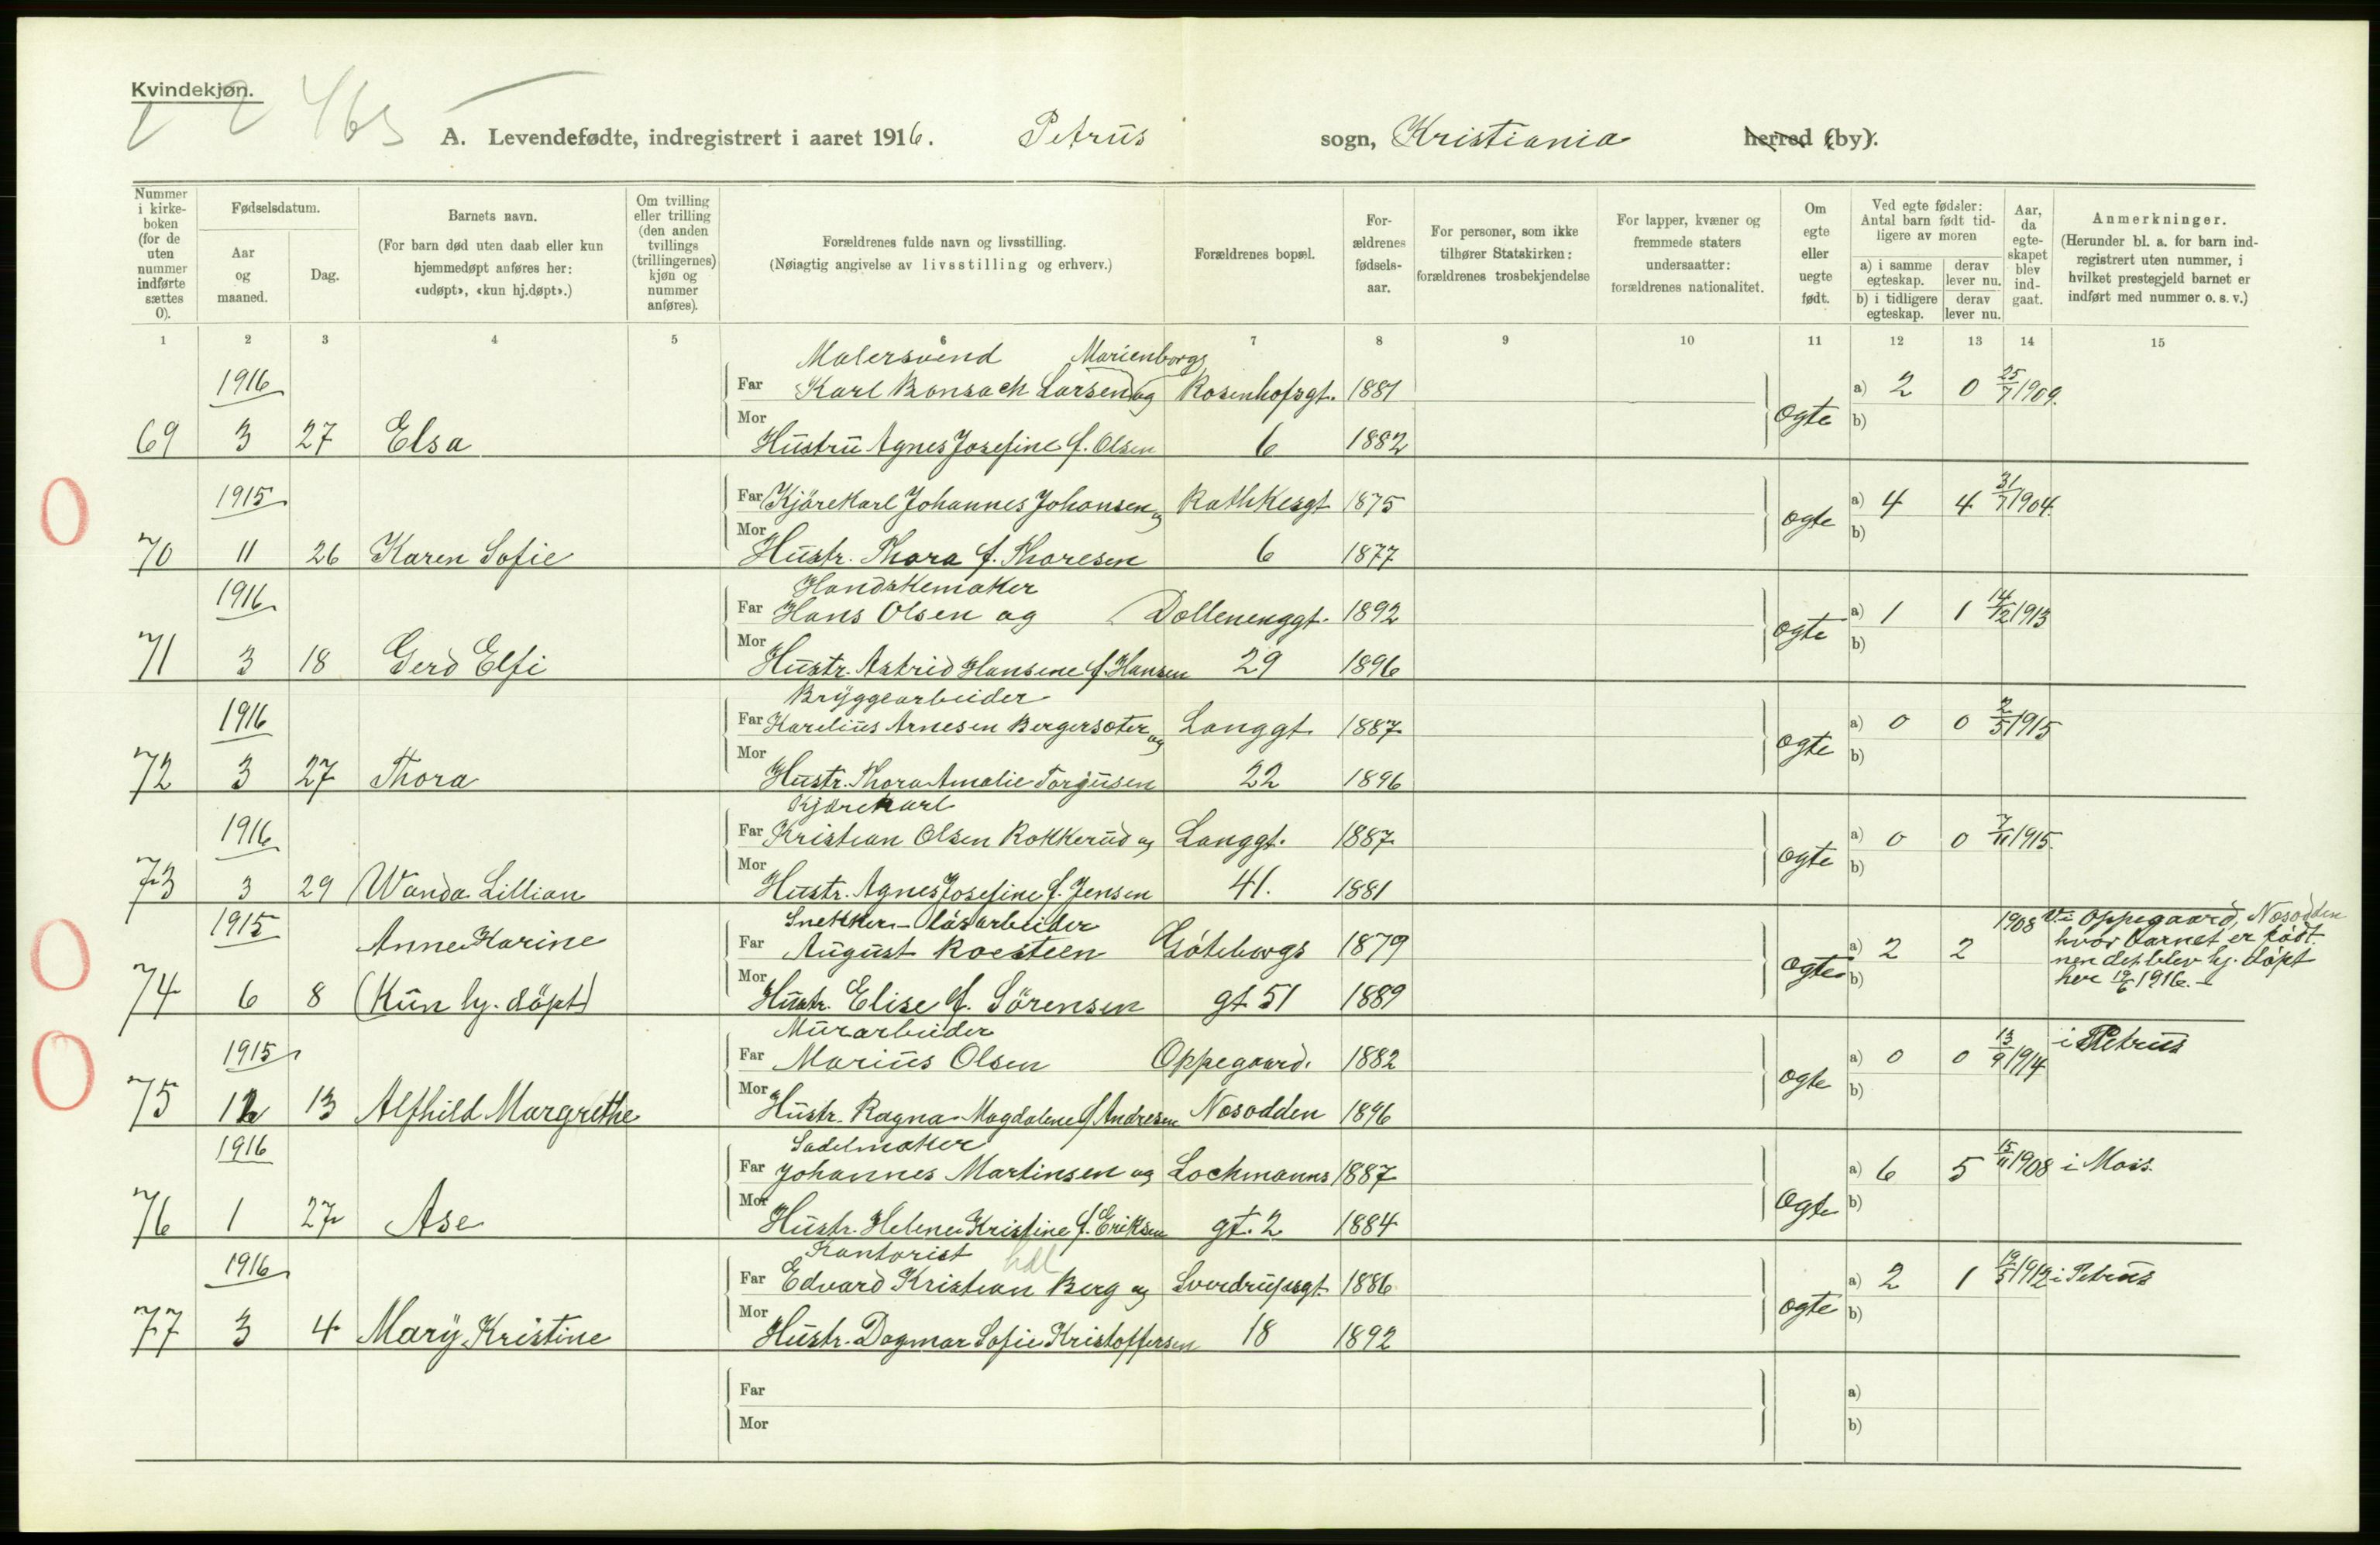 Kvindekjøn.
2 2 465
A. Levendefødte, indregistrert i aaret 1916. Petrus sogn, Kristiania herred (by).
Nummer i kirkeboken (for de uten nummer indførte sættes 0).
Fødselsdatum.
Aar og maaned.
Dag.
Barnets navn.
(For barn død uten daab eller kun hjemmedøpt anføres her: «udøpt», «kun hj.døpt».)
Om tvilling eller trilling (den anden tvillings (trillingernes) kjøn og nummer anføres).
Forældrenes fulde navn og livsstilling.
(Nøiagtig angivelse av livsstilling og erhverv.)
Forældrenes bopæl.
Forældrenes fødselsaar.
For personer, som ikke tilhører Statskirken: forældrenes trosbekjendelse
For lapper, kvæner og fremmede staters undersaatter: forældrenes nationalitet.
Om egte eller uegte født.
Ved egte fødsler: Antal barn født tidligere av moren
a) i samme egteskap.
derav lever nu.
b) i tidligere egteskap.
derav lever nu.
Aar, da egteskapet blev indgaat.
Anmerkninger.
(Herunder bl. a. for barn indregistrert uten nummer, i hvilket prestegjeld barnet er indført med nummer o. s. v.)
1 2 3 4 5 6 7 8 9 10 11 12 13 14 15
Malersvend Marienborg
1916 Far Karl Bonsach Larsen og Rosenhofsgt. 1881 a) 2 0 25/7 1909.
69 3 27 Elsa Mor Hustru Agnes Josefine f. Olsen 6 1882 ogte b)
1915 Far Kjørekarl Johannes Johansen og Rathkesgt 1875 a) 4 4 31/7 1904.
70 11 26 Karen Sofie Mor Hustr. Thora f. Thoresen 6 1877 ogte b)
Handskemaker
1916 Far Hans Olsen og Dællenenggt. 1892 a) 1 1 14/12 1913
71 3 18 Gerd Elfi Mor Hustr. Astrid Hansine f. Hansen 29 1896 ogte b)
Bryggearbeider
1916 Far Karelius Arnesen Bergersæter og Langgt. 1887 a) 0 0 2/5 1915
72 3 27 Thora Mor Hustr. Thora Amalie Torgusen 22 1896 ogte b)
Kjørekarl
1916 Far Kristian Olsen Rokkerud og Langgt. 1887 a) 0 0 7/11 1915.
73 3 29 Wanda Lillian Mor Hustr. Agnes Josefine f. Jensen 41. 1881 ogte b)
Snekker- løsarbeider
1915 Anne Karine Far August Roesteen Göteborgs 1879 a) 2 2 1908 Oppegaard, Næsodden
hvor barnet er født.
men det blev hj. døpt
her 19/6 1916.
74 6 8 (Kun hj. døpt) Mor Hustr. Elise f. Sörensen gt 51 1889 ogte b)
Murarbeider
1915 Far Marius Olsen Oppegaard. 1882 a) 0 0 13/9 1914 i Petrus
75 12 13 Alfhild Margrethe Mor Hustr. Ragna Magdalene f Andresen Næsodden 1896 ogte b)
Sadelmaker
1916 Far Johannes Martinsen og Lochmanns 1887 a) 6 5 15/11 1908 i Moss.
76 1 27 Ase Mor Hustr. Helene Kristine f. Eriksen gt. 2 1884 Ogte b)
Kontorist hdl
1916 Far Edvard Kristian Berg og Sverdrupsgt. 1886 a) 2 1 19/5 1912 i Petrus
77 3 4 Mary Kristine Mor Hustr. Dagmar Sofie Kristoffersen 18 1892 ogte b)
Far a)
Mor b)